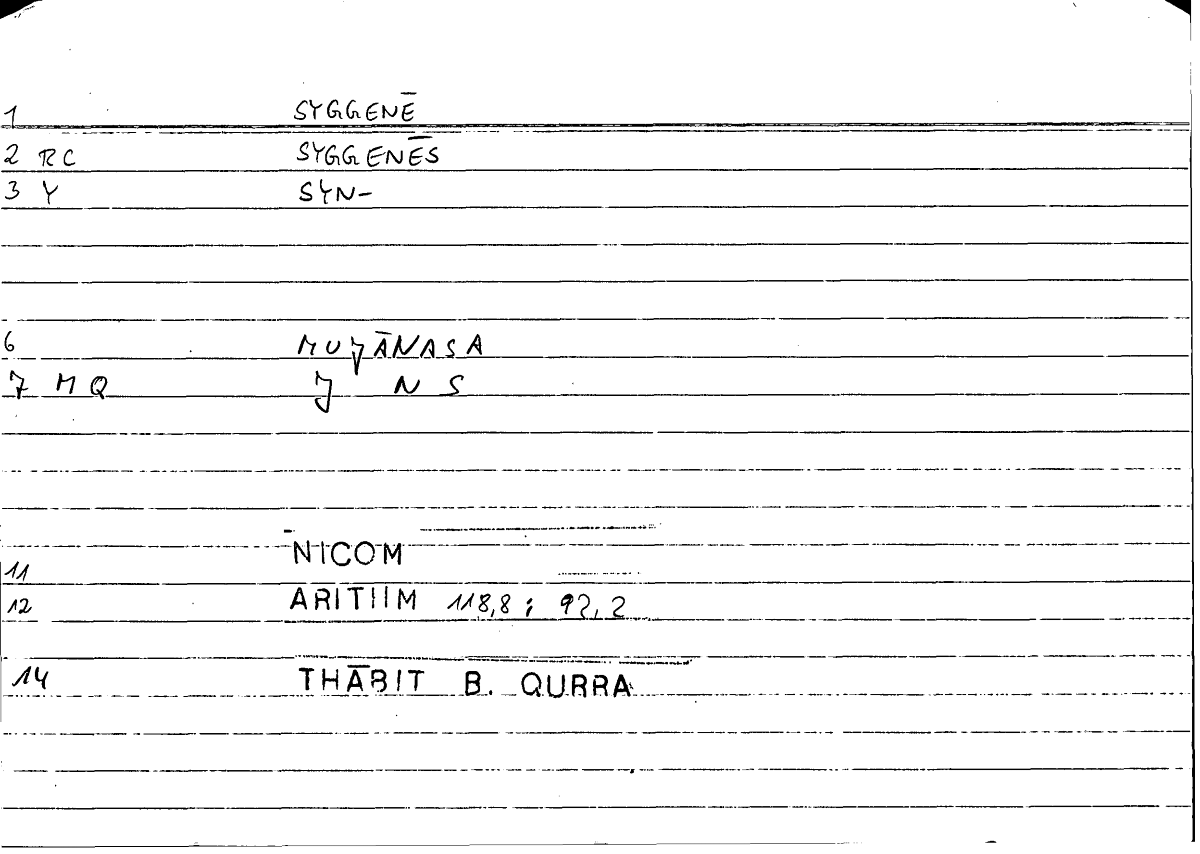 1 SYGGENĒ
2 RC SYGGENĒS
3 Y SYN-
6 MUJĀNASA
7 MQ J N S
NICOM
11
12 ARITHM 118,8 ; 92,2
14 THĀBIT B. QURRA